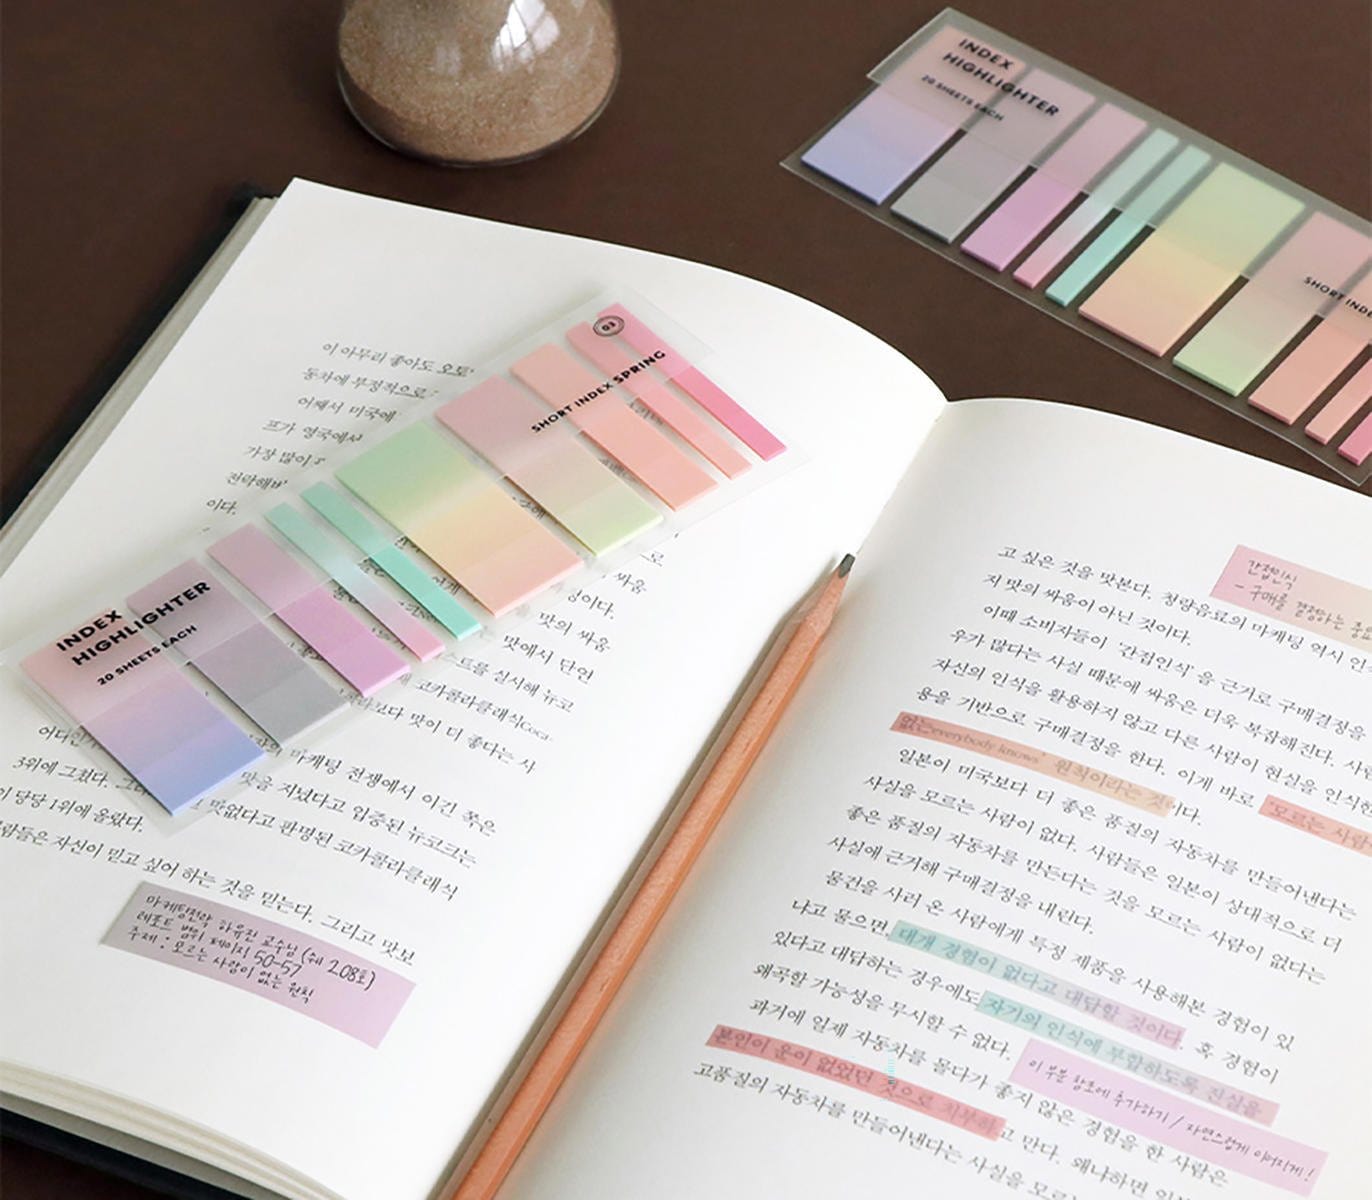 INDEX
HIGHLIGHTER
20 SHEETS EACH
SHORT INDE
03
SHORT INDEX SPRING
INDEX
HIGHLIGHTER
20 SHEETS EACH
이 아무리 좋아도 오토
동차에 부정적으로
어째서 미국에
프가 영국에서
가장 많이
전락해버
이다.
싸움
이다.
맛의 싸움
맛에서 단연
스트를 실시해 뉴코
코카콜라클래식(Coca-
보다 맛이 더 좋다는 사
마케팅 전쟁에서 이긴 쪽은
3위에 그쳤다. 맛을 지녔다고 입증된 뉴코크는
당당 1위에 올랐다. 맛없다고 판명된 코카콜라클래식
사람들은 자신이 믿고 싶어 하는 것을 믿는다. 그리고 맛보
마케팅전략 하유진 교수님 (쉐 208호)
레포트 범위 페이지 50-57
주제 : 모르는 사람이 없는 원칙
고 싶은 것을 맛본다. 청량음료의 마케팅 역시 인
저 맛의 싸움이 아닌 것이다.
이때 소비자들이 '간접인식'을 근거로 구매결정을
우가 많다는 사실 때문에 싸움은 더욱 복잡해진다. 사람
자신의 인식을 활용하지 않고 다른 사람이 현실을 인식한
용을 기반으로 구매결정을 한다. 이게 바로 '모르는 사람
없는everybody knows' 원칙이라는 것이다.
일본이 미국보다 더 좋은 품질의 자동차를 만들어낸다는
사실을 모르는 사람이 없다. 사람들은 일본이 상대적으로 더
좋은 품질의 자동차를 만든다는 것을 모르는 사람이 없다는
사실에 근거해 구매결정을 내린다.
물건을 사러 온 사람에게 특정 제품을 사용해본 경험이 있
냐고 물으면 대개 경험이 없다고 대답할 것이다. 혹 경험이
있다고 대답하는 경우에도 자기의 인식에 부합하도록 진실을
왜곡할 가능성을 무시할 수 없다.
과거에 일제 자동차를 몰다가 좋지 않은 경험을 한 사람은
본인이 운이 없었던 것으로 치부하고 만다. 왜냐하면
고품질의 자동차를 만들어낸다는 사실을
간접인식
- 구매를 결정하는
이 부분 참조에 추가하기 / 자연스럽게 이어지게!